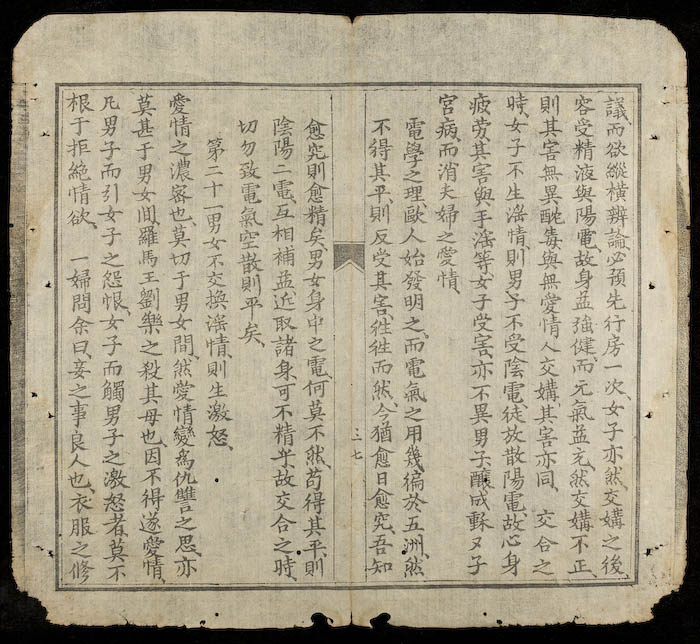 議、而欲縱横辨論、必預先行房一次、女子亦然、交媾之後、
容受精液與陽電、故身益強健、而元氣益充、然交媾不正、
則其害無異酖毒、與無愛情人交媾、其害亦同、交合之
時、女子不生淫情、則男子不受陰電、徒放散陽電、故心身
疲勞、其害與手淫等、女子受害、亦不異男子、釀成□又子
宮病、而消夫婦之愛情、
電學之理、歐人始發明之、而電氣之用、幾徧於五洲、然
不得其平、則反受其害、往往而然、今猶愈日愈究、吾知
三七
愈究則愈精矣、男女身中之電、何莫不然、苟得其平、則
陰陽二電、互相補益、近取諸身、可不精乎、故交合之時、
切勿致電氣空散則平矣、
第二十一男女不交換淫情、則生激怒、
愛情之濃密也、莫切于男女間、然愛情變為仇讐之思、亦
莫甚于男女間、羅馬王劉樂之殺其母也、因不得遂愛情、
凡男子而引女子之怨恨、女子而觸男子之激怒者、莫不
根于拒絶情欲、一婦問余曰、妾之事良人也、衣服之修